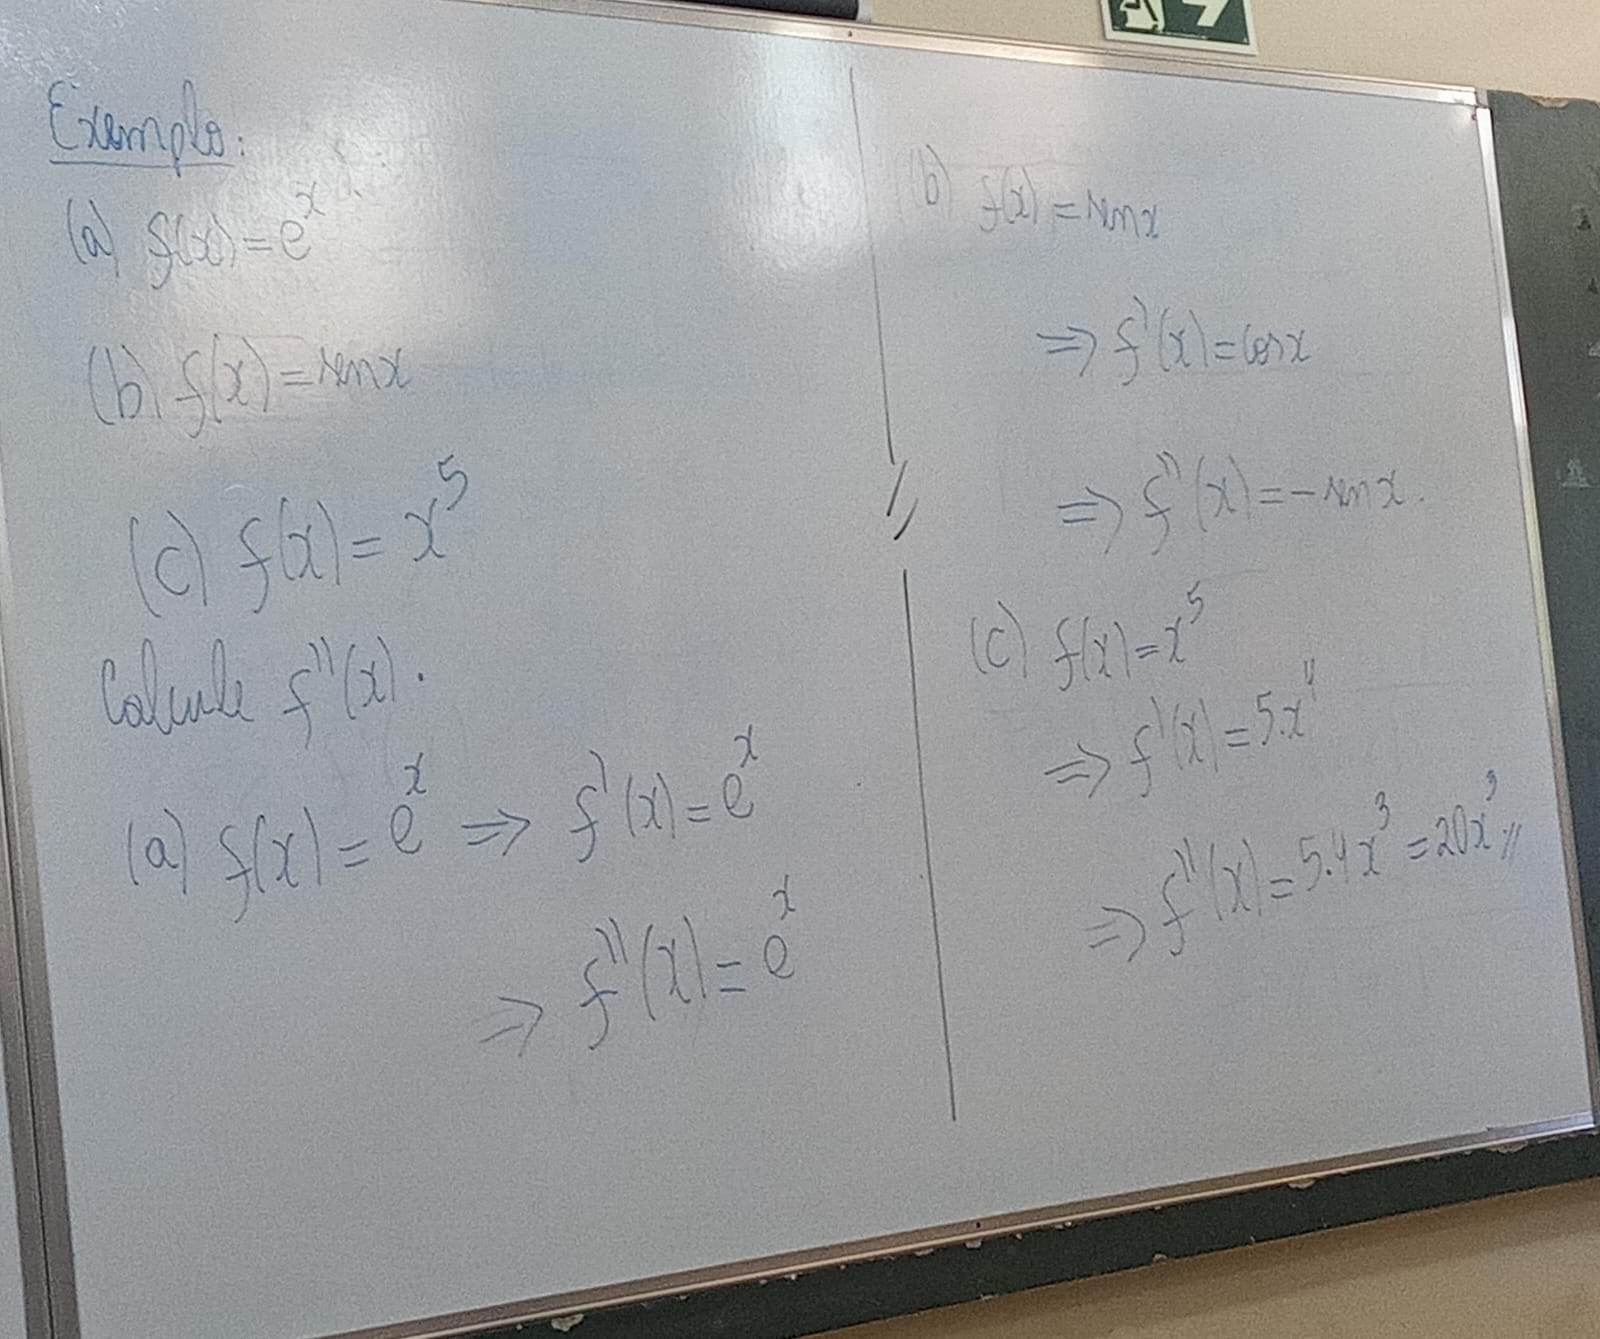 Exemplo:
(a) f(x) = e^x
(b) f(x) = sen x
(c) f(x) = x^5
Calcule f''(x).
(a) f(x) = e^x ⇒ f'(x) = e^x
⇒ f''(x) = e^x
(b) f(x) = sen x
⇒ f'(x) = cos x
⇒ f''(x) = - sen x.
(c) f(x) = x^5
⇒ f'(x) = 5.x^4
⇒ f''(x) = 5.4x^3 = 20x^3 //